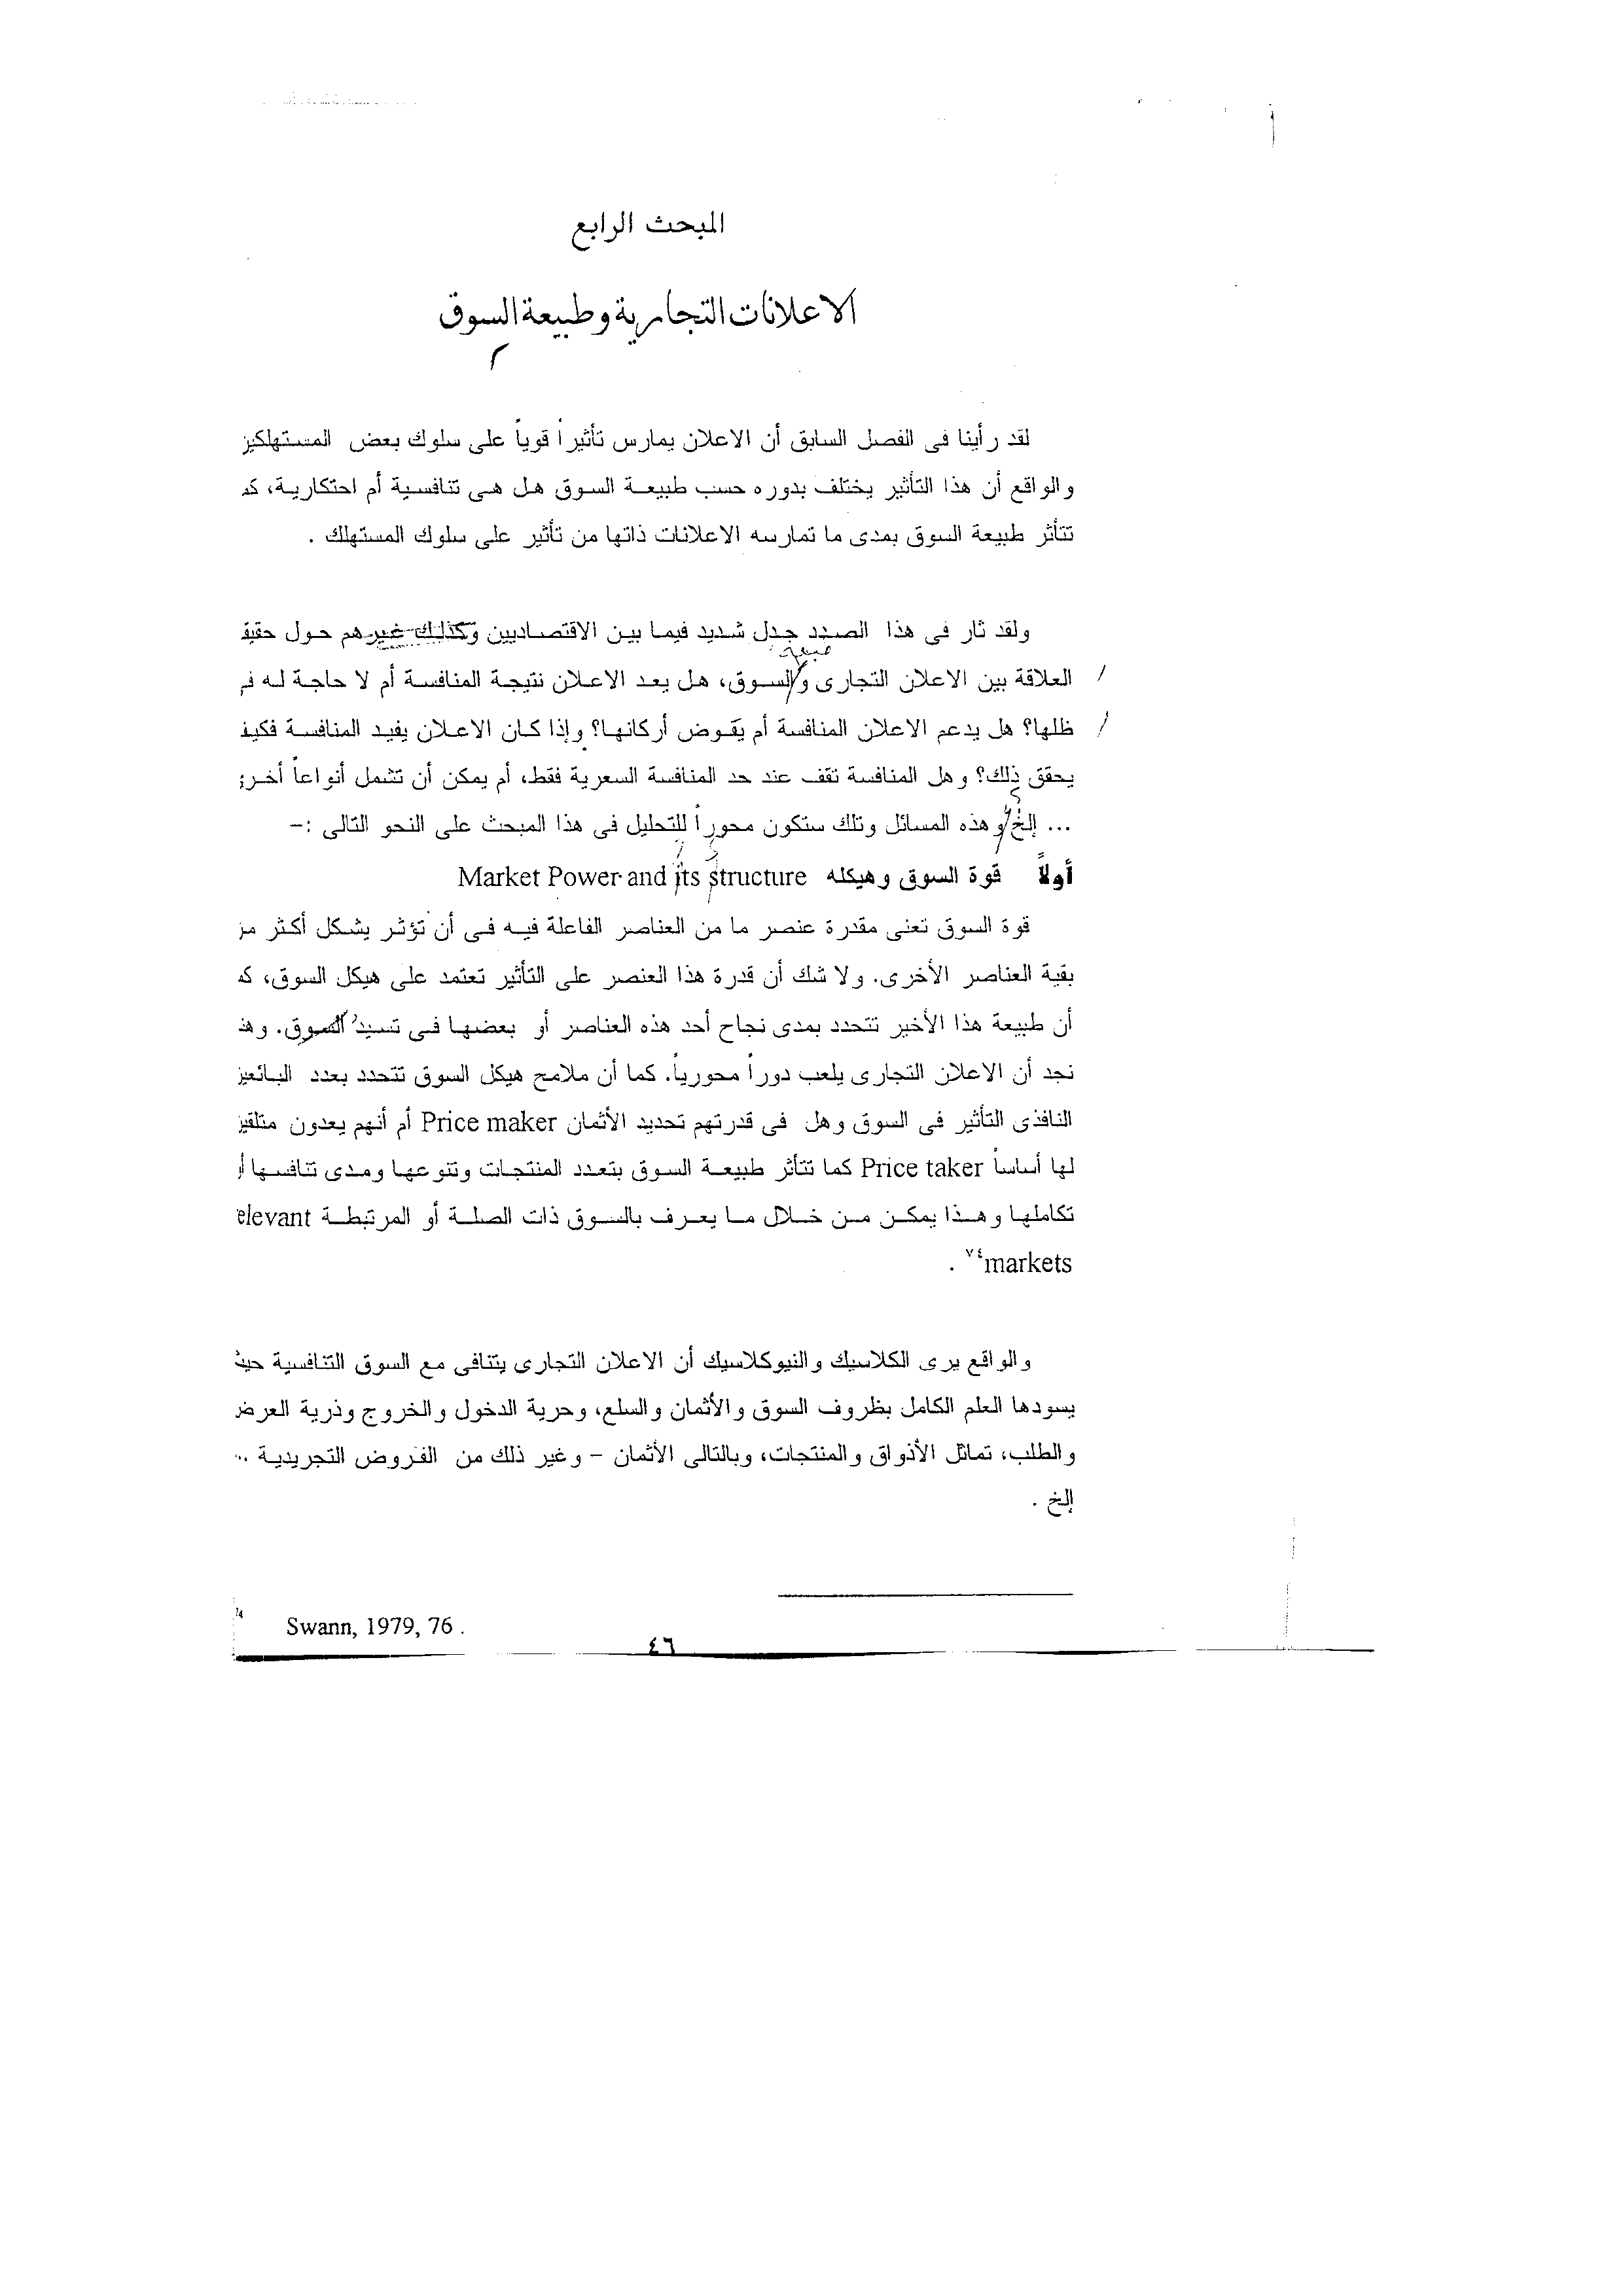 المبحث الرابع
الاعلانات التجارية وطبيعة السوق
لقد رأينا فى الفصل السابق أن الاعلان يمارس تأثيراً قوياً على سلوك بعض المستهلكين
والواقع أن هذا التأثير يختلف بدوره حسب طبيعة السوق هل هى تنافسية أم احتكارية، كم
تتأثر طبيعة السوق بمدى ما تمارسه الاعلانات ذاتها من تأثير على سلوك المستهلك .
ولقد ثار فى هذا الصدد جدل شديد فيما بين الاقتصاديين وكذلك غيرهم حول حقيق
طبيعة
العلاقة بين الاعلان التجارى والسوق، هل يعد الاعلان نتيجة المنافسة أم لا حاجة له فى
ظلها؟ هل يدعم الاعلان المنافسة أم يقوض أركانها؟ وإذا كان الاعلان يفيد المنافسة فكيف
يحقق ذلك؟ وهل المنافسة تقف عند حد المنافسة السعرية فقط، أم يمكن أن تشمل أنواعاً أخرى
... إلخ وهذه المسائل وتلك ستكون محوراً للتحليل فى هذا المبحث على النحو التالى :-
أولاً قوة السوق وهيكله Market Power and its structure
قوة السوق تعنى مقدرة عنصر ما من العناصر الفاعلة فيه فى أن تؤثر يشكل أكثر من
بقية العناصر الأخرى. ولا شك أن قدرة هذا العنصر على التأثير تعتمد على هيكل السوق، كم
أن طبيعة هذا الأخير تتحدد بمدى نجاح أحد هذه العناصر أو بعضها فى تسيد السوق. وهن
نجد أن الاعلان التجارى يلعب دوراً محورياً. كما أن ملامح هيكل السوق تتحدد بعدد البائعين
النافذى التأثير فى السوق وهل فى قدرتهم تحديد الأثمان Price maker أم أنهم يعدون متلقين
لها أساساً Price taker كما تتأثر طبيعة السوق بتعدد المنتجات وتنوعها ومدى تنافسها أ
تكاملها وهذا يمكن من خلال ما يعرف بالسوق ذات الصلة أو المرتبطة elevant
markets٧٤ .
والواقع يرى الكلاسيك والنيوكلاسيك أن الاعلان التجارى يتنافى مع السوق التنافسية حيث
يسودها العلم الكامل بظروف السوق والأثمان والسلع، وحرية الدخول والخروج وذرية العرض
والطلب، تماثل الأذواق والمنتجات، وبالتالى الأثمان - وغير ذلك من الفروض التجريدية ..
إلخ .
74 Swann, 1979, 76 .
٤٦